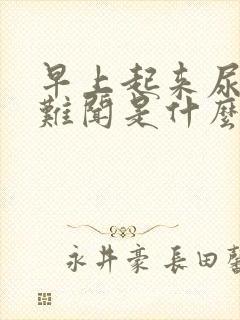 早上起来尿
難聞是什麼
永井豪 長田馨